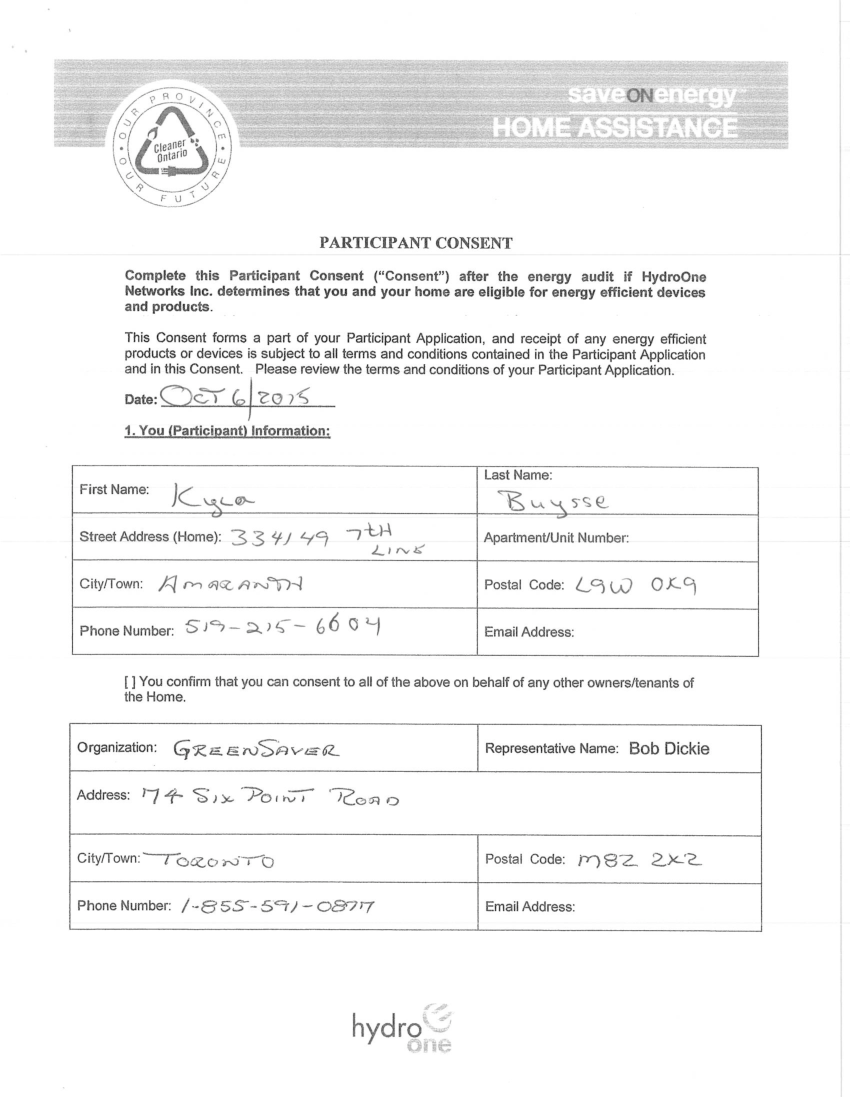 OUR PROVINCE • OUR FUTURE •
Cleaner
Ontario
saveONenergy™
HOME ASSISTANCE
PARTICIPANT CONSENT
Complete this Participant Consent (“Consent”) after the energy audit if HydroOne
Networks Inc. determines that you and your home are eligible for energy efficient devices
and products.
This Consent forms a part of your Participant Application, and receipt of any energy efficient
products or devices is subject to all terms and conditions contained in the Participant Application
and in this Consent. Please review the terms and conditions of your Participant Application.
Date: OCT 6/2015
1. You (Participant) Information:
First Name: Kyla
Last Name: Buysse
Street Address (Home): 334149 7TH LINE
Apartment/Unit Number:
City/Town: AMARANTH
Postal Code: L9W 0K9
Phone Number: 519-215-6604
Email Address:
[ ] You confirm that you can consent to all of the above on behalf of any other owners/tenants of
the Home.
Organization: GREENSAVER
Representative Name: Bob Dickie
Address: 74 SIX POINT ROAD
City/Town: TORONTO
Postal Code: M8Z 2X2
Phone Number: 1-855-591-0877
Email Address:
hydro
one